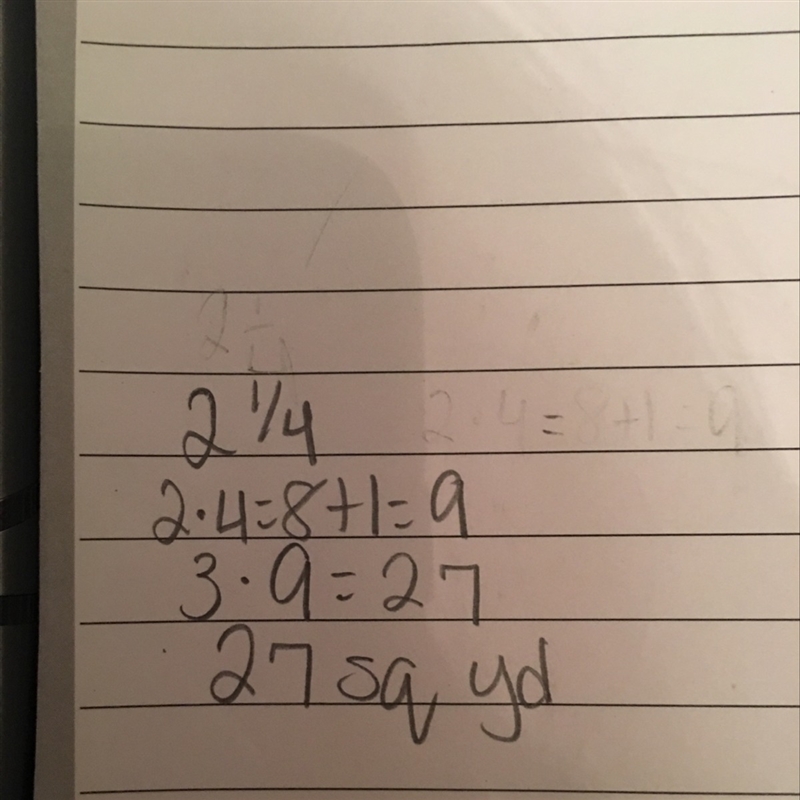 2 1/4
2 1/4
2·4=8+1=9
2·4=8+1=9
3·9=27
27 sq yd